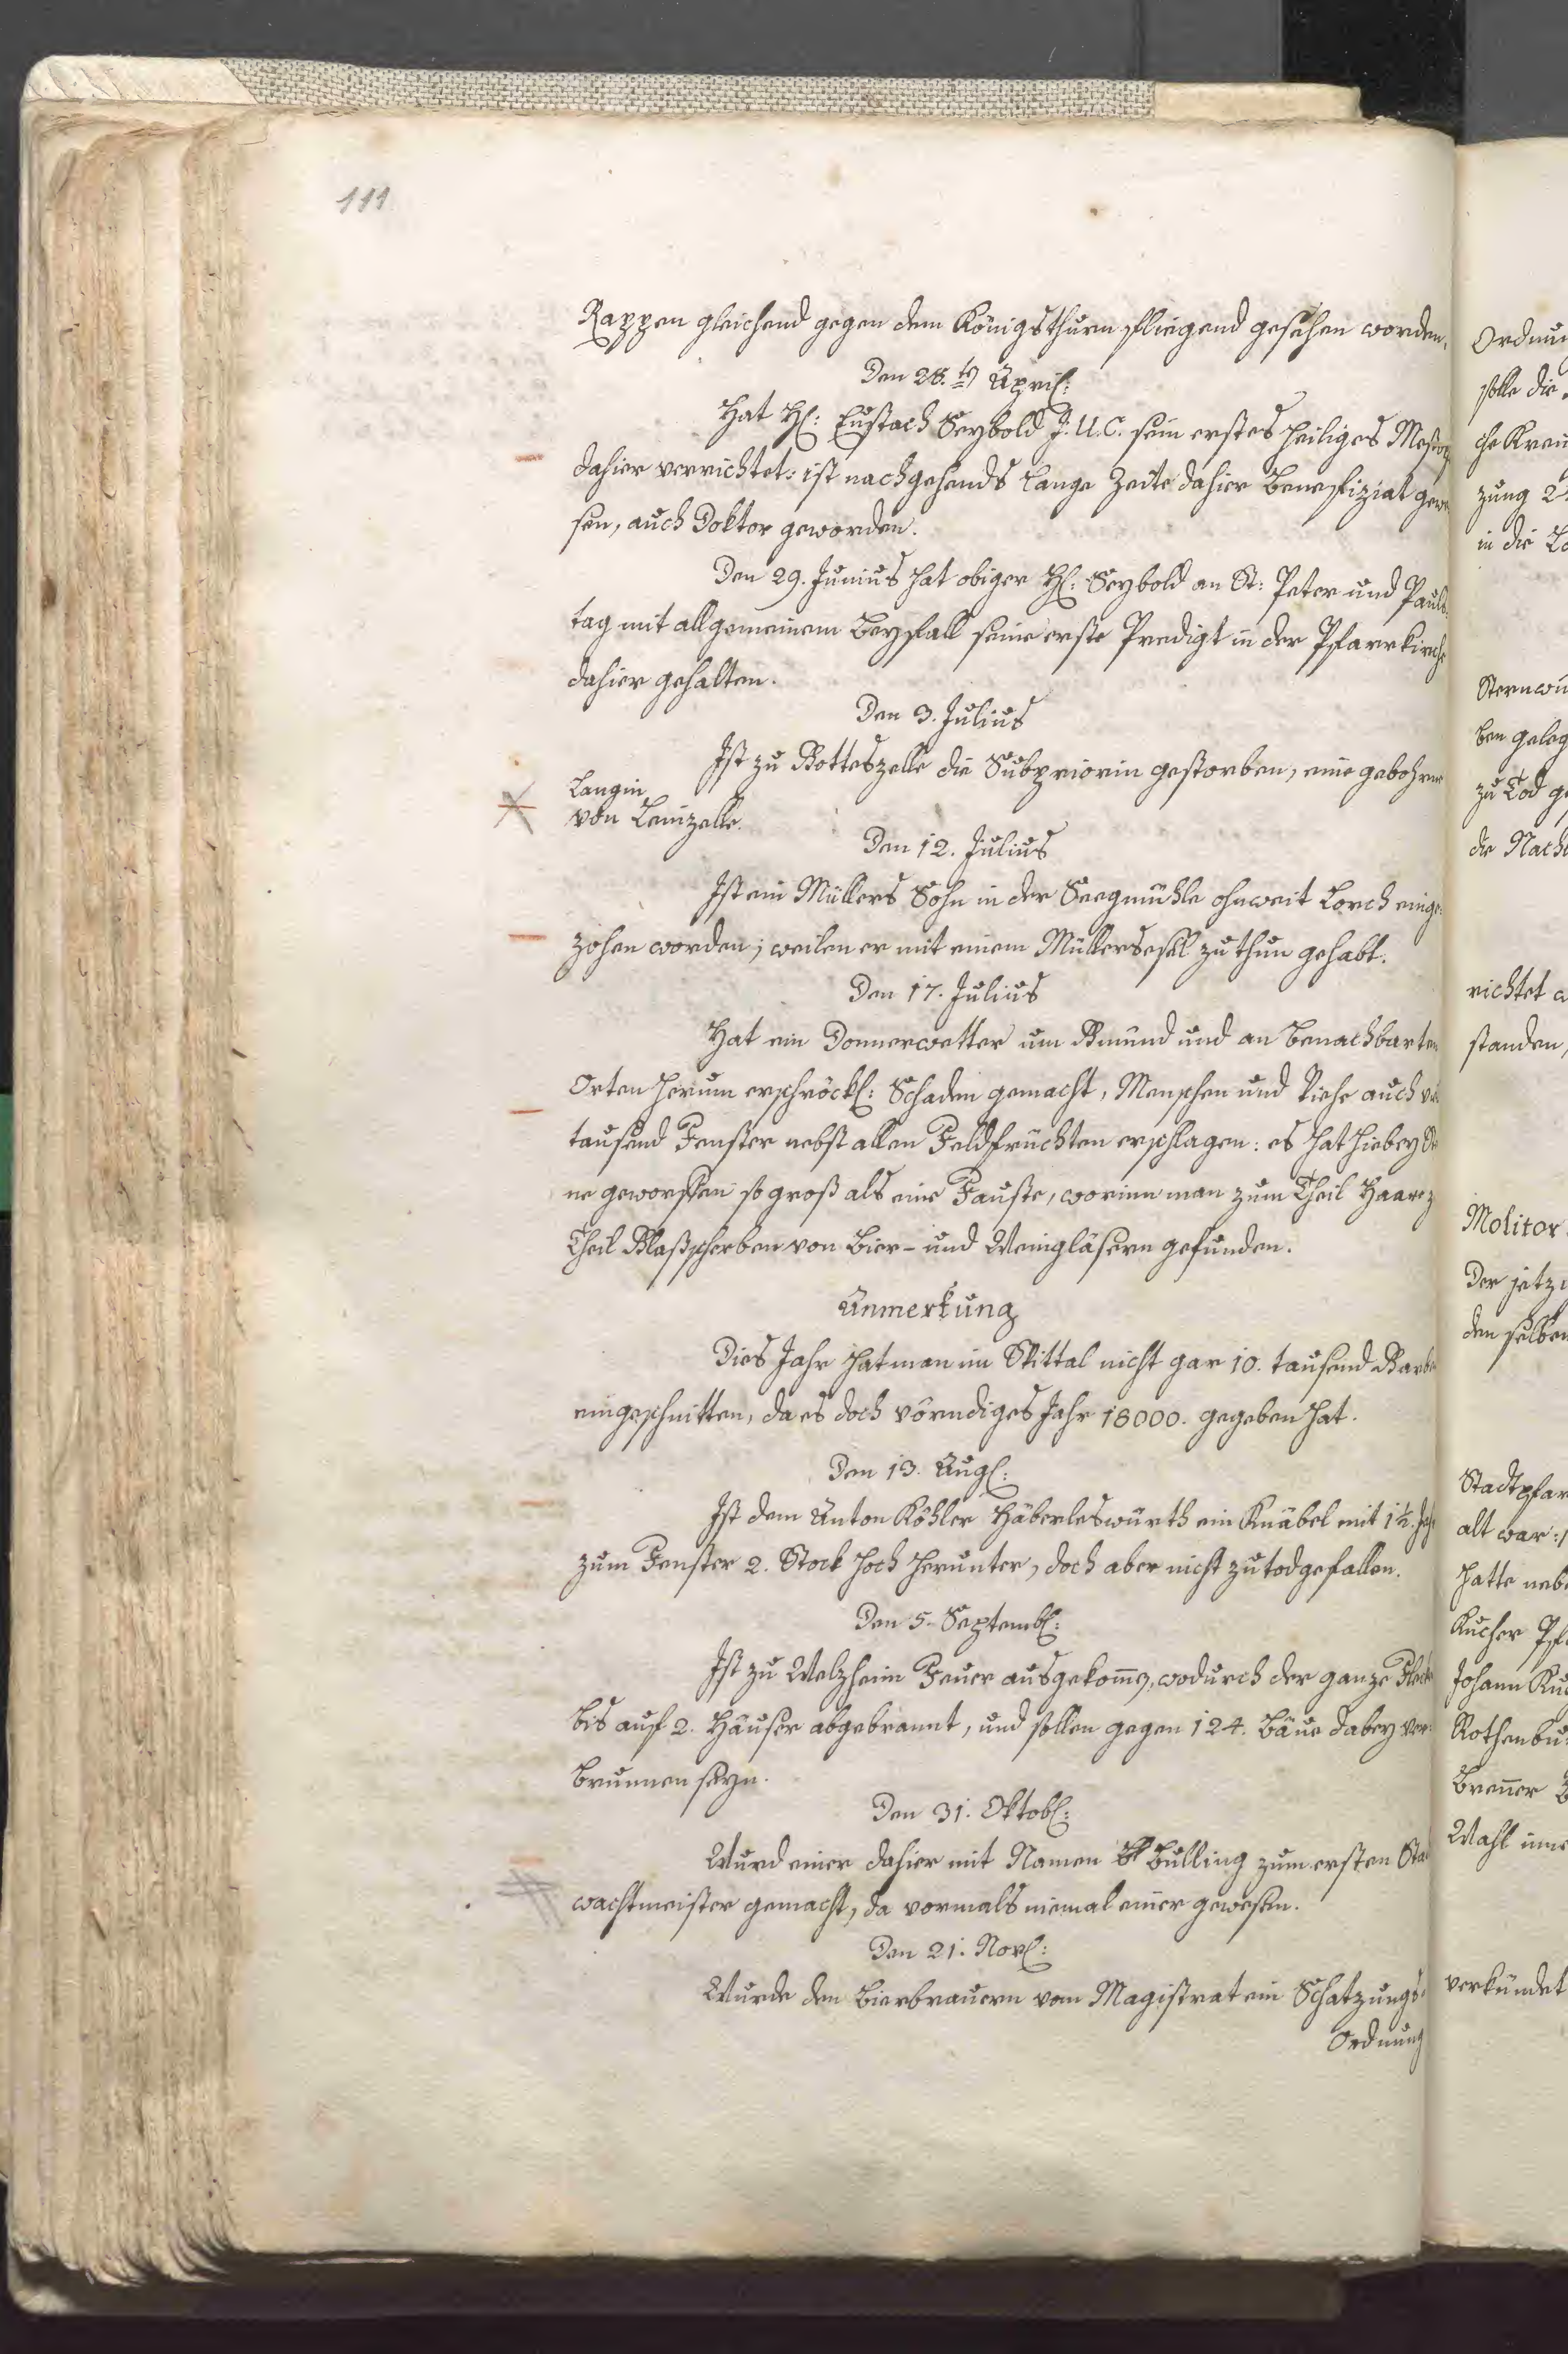 111
Rappen gleichend gegen dem Königsthurn fliegend gesehen worden.
Den 28.tn April:
Hat H: Eustach Seybold J. U. C. sein erstes heiliges Meßop
dahier verrichtet: ist nachgehends lange Zeite dahier Benefiziat gewe
sen, auch Doktor geworden.
Den 29. Junius hat obiger H: Seybold an St: Peter und Pauls
tag mit allgemeinem Beyfall seine erste Predigt in der Pfarrkirche
dahier gehalten.
Den 3. Julius
Ist zu Gotteszelle die Subpriorin gestorben, eine gebohrne
Langin
von Leinzelle.
Den 12. Julius
Ist ein Müllers Sohn in der Seegmühle ohnweit Lorch einge:
zohen worden; weilen er mit einem Müllersesel zu thun gehabt.
Den 17. Julius
Hat ein Donnerwetter um Gmünd und an benachbarten
Orten herum erschröckl: Schaden gemacht, Menschen und Viehe auch vil
tausend Fenster nebst allen Feldfrüchten erschlagen: es hat hiebey St
ne geworffen so groß als eine Fauste, worinn man zum Theil Haar z
Theil Glaßscherben von Bier- und Weingläsern gefunden.
Anmerkung
Dies Jahr hat man im Spittal nicht gar 10. tausend Garbe
eingeschnitten, da es doch vörndiges Jahr 18000. gegeben hat.
Den 13. Aug:
Ist dem Anton Köhler Häberleswürth ein Knäbel mit 1½. Jah
zum Fenster 2. Stock hoch herunter, doch aber nicht zu tod gefallen.
Den 5. Septemb:
Ist zu Welzheim Feuer ausgekom̄en, wodurch der ganze Fleck
bis auf 2. Häuser abgebrannt, und sollen gegen 124. Bäue dabey ver:
brunnen seyn.
Den 31. Oktob:
Wurd einer dahier mit Namen Bulling zum ersten Sta
wachtmeister gemacht, da vormals niemal einer gewesen.
Den 21. Nov:
Wurde den Bierbrauern vom Magistrat ein Schatzungs-
Ordnung
Ordnu
solle die
che Kreu
zung 2
in die
Sternwü
ben geleg
zu Tod g
die Nach
richtet
standen,
Molitor
der jetzi
den selben
Stadtpfar
alt war:
hatte neb
Kucher Pf
Johann Ku
Rothenbu
Bren̄er
Wahl inne
verkündet